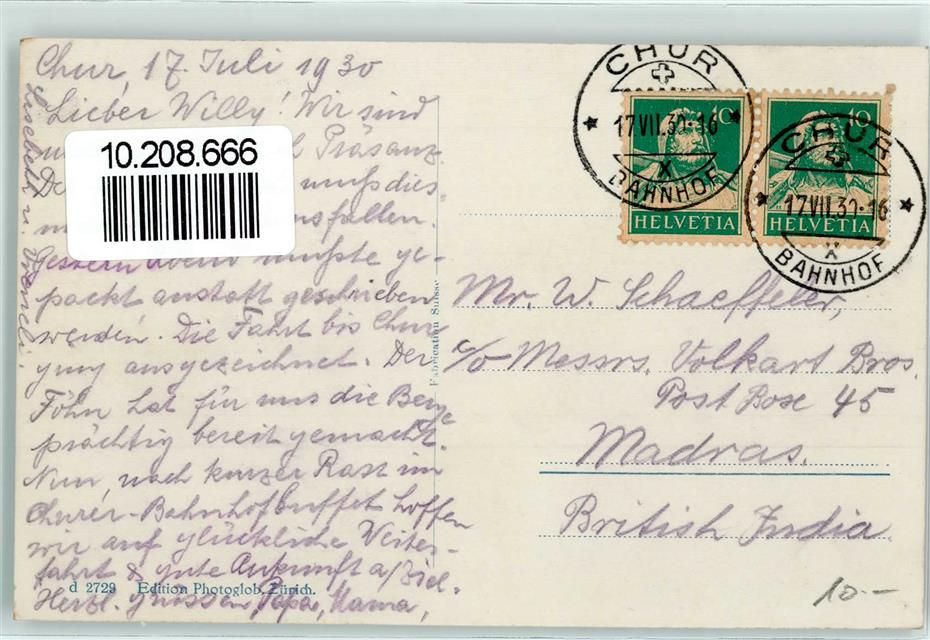 Chur, 17. Juli 1930
Lieber Willy! Wir sind
Präsanz.
muss dies
nsfallen.
Gestern Abend musste ge-
packt anstatt geschrieben
werden. Die Fahrt bis Chur
ging ausgezeichnet. Der
Föhn hat für uns die Berge
prächtig bereit gemacht.
Nun, nach kurzer Rast im
Churer-Bahnhofbuffet hoffen
wir auf glückliche Weiter-
fahrt & gute Ankunft a/Ziel.
Herzl. Grüssen, Papa, Mama,
Lisebeth u. Vreneli.
10.208.666
d 2729 Edition Photoglob, Zürich.
Fabrication Suisse
CHUR
17 VII.30-16
X
BAHNHOF
10
HELVETIA
10
HELVETIA
CHUR
17 VII.30-16
X
BAHNHOF
Mr. W. Schaeffeler,
c/o Messrs. Volkart Bros.
Post Boxe 45
Madras.
British India
10.--